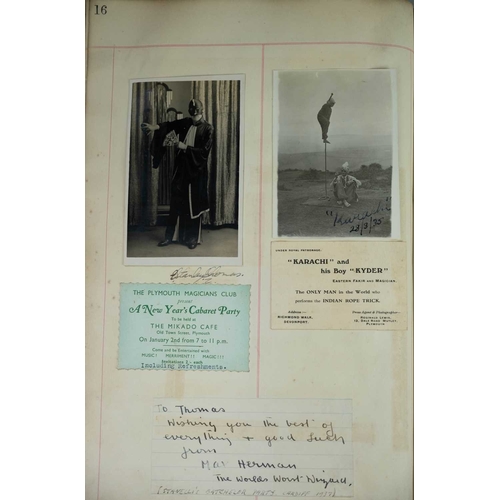 16
"Karachi"
28/3/35
THE PLYMOUTH MAGICIANS CLUB
present
A New Year's Cabaret Party
To be held at
THE MIKADO CAFE
Old Town Street, Plymouth
On January 2nd from 7 to 11 p.m.
Come and be Entertained with
MUSIC! MERRIMENT!! MAGIC!!!
Including Refreshments.
UNDER ROYAL PATRONAGE.
"KARACHI" and
his Boy "KYDER"
EASTERN FAKIR AND MAGICIAN
The ONLY MAN in the World who
performs the INDIAN ROPE TRICK.
Address:-
RICHMOND WALK,
DEVONPORT.
PLYMOUTH
To Thomas
Wishing you the best of
everything & good luck
from
Mac Herman
The Worlds Worst Wizard.